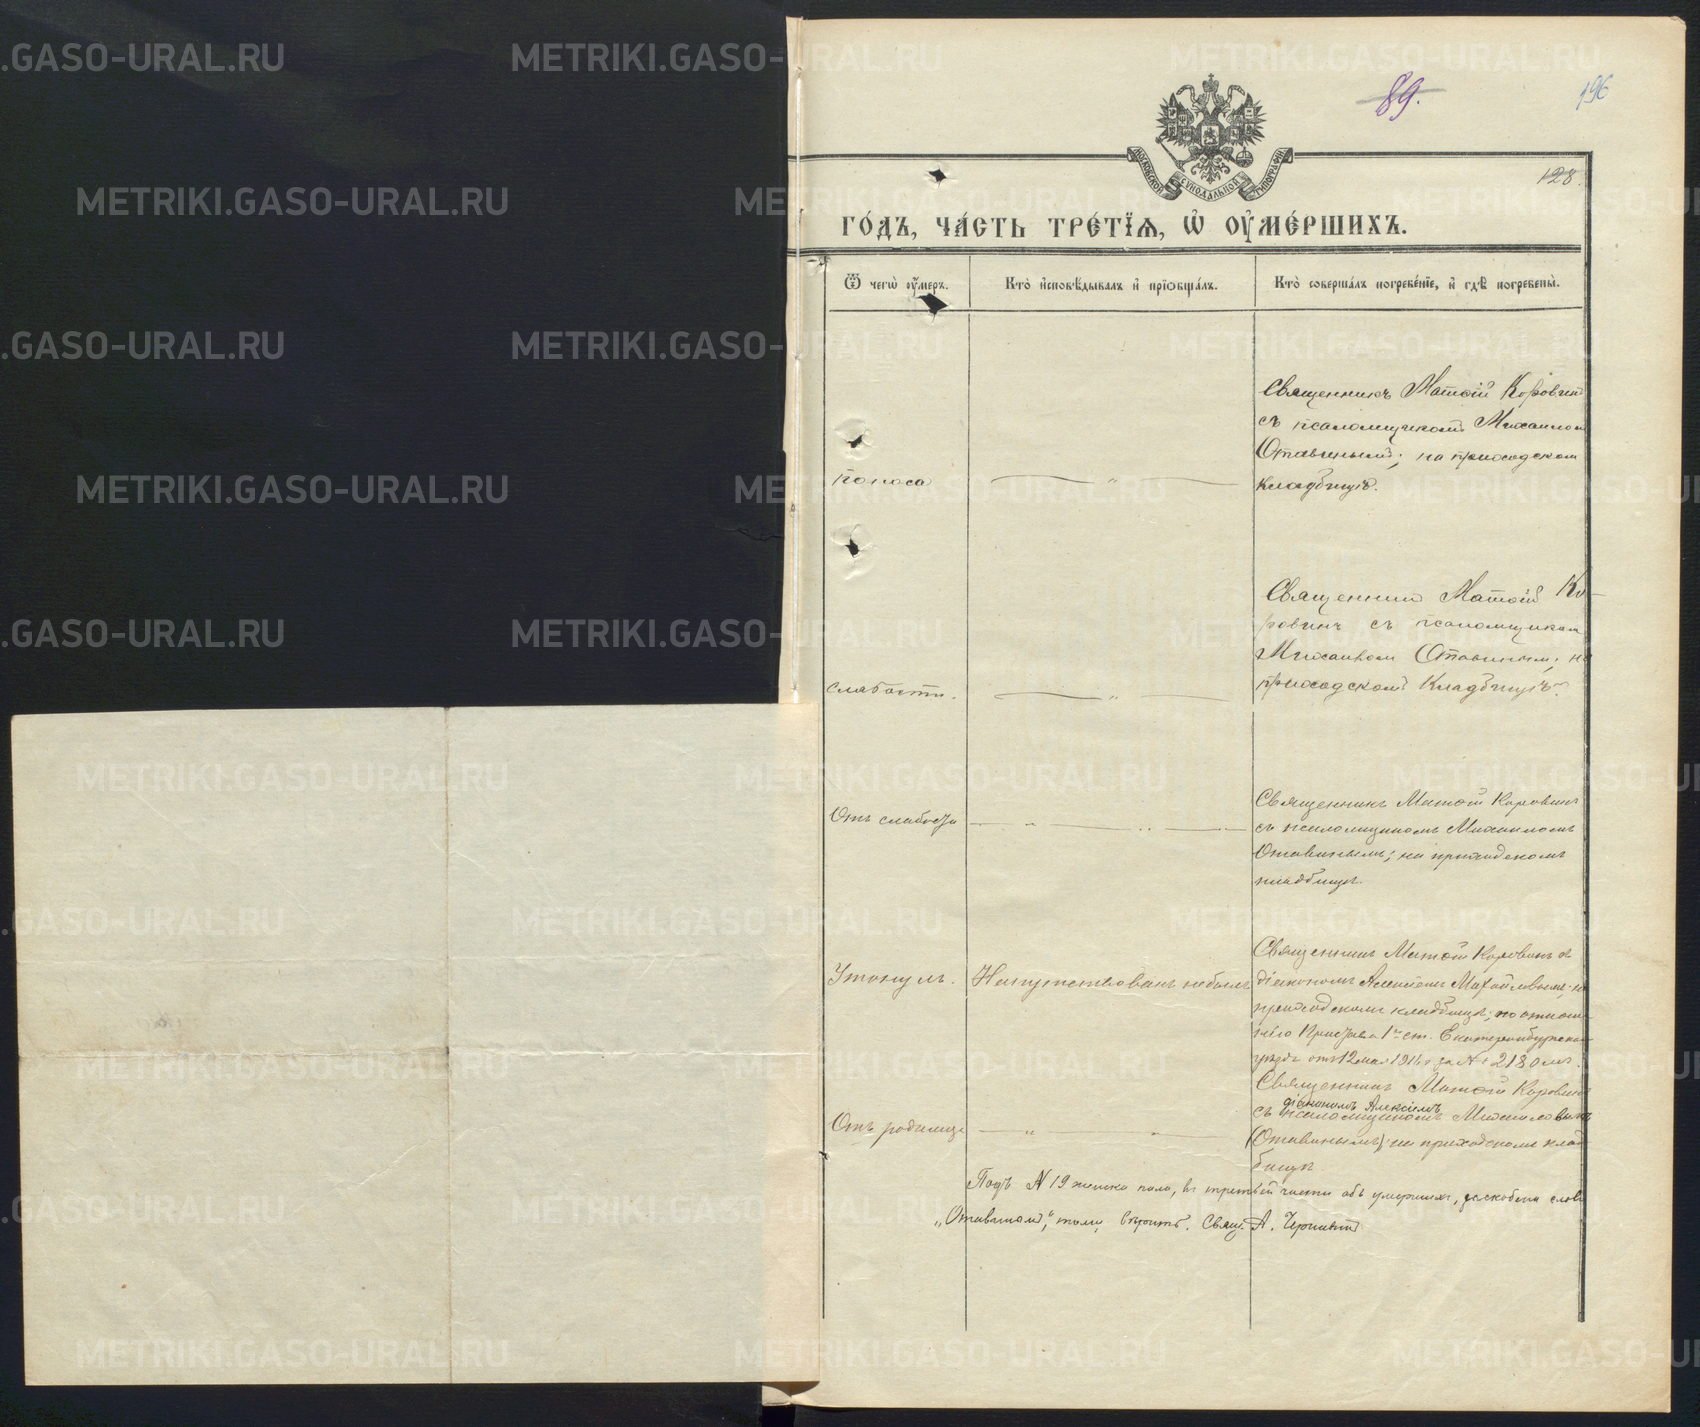 89.
196
128.
МОСКОВСКОЙ СѴНОДАЛЬНОЙ ТИПОГРАФІИ
ГО́ДЪ, ЧА́СТЬ ТРЕ́ТЇѦ, Ѡ҆ ОУ҆МЕ́РШИХЪ.
Ѿ чегѡ̀ оу҆́меръ.
Кто̀ и҆сповѣ́дывалъ и҆ прїѡбща́лъ.
Кто̀ соверша́лъ погребе́нїе, и҆ гдѣ̀ погребены̀.
поноса
Священникъ Матѳій Коровинъ
съ псаломщикомъ Михаиломъ
Отавинымъ; на приходском
кладбищѣ.
слабости.
Священник Матѳій Ко-
ровинъ съ псаломщикам
Михаилом Отавиным; на
приходскомъ кладбищѣ.
Отъ слабости
Священникъ Матѳій Коровинъ
съ псаломщикомъ Михаиломъ
Отавинымъ; на приходскомъ
кладбищѣ.
Утонулъ.
Священникъ Матѳій Коровинъ съ
діакономъ Алексѣемъ Михайловымъ; на
приходскомъ кладбищѣ; по отноше
нію Пристава 1го ст. Екатеринбургскаго
уѣзда отъ 12 мая 191 г за № 2180мъ.
Отъ родимца
Священникъ Матѳій Коровинъ
діакономъ Алексіемъ
съ псаломщикомъ Михаиловымъ
(Отавинымъ); на приходскомъ клад
бищѣ.
Подъ № 19 женска пола, въ третьей части объ умершихъ, заскоблен слово
„Отавином", тому вѣрить. Свящ. А.